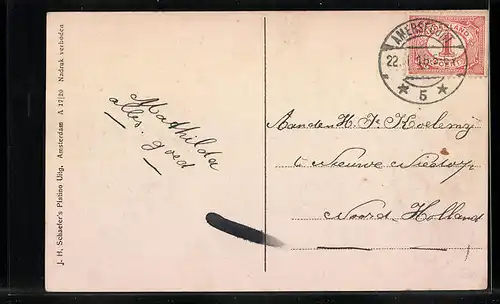 J. H. Schaefer's Platino Uitg. Amsterdam A 17|20 Nadruk verboden
Mathilda
alles goed
AMERSFOORT
22.
* 5 *
NEDERLAND
1
Aan den H. Js Koelemij
te Nieuwe Niedorp
Noord-Holland